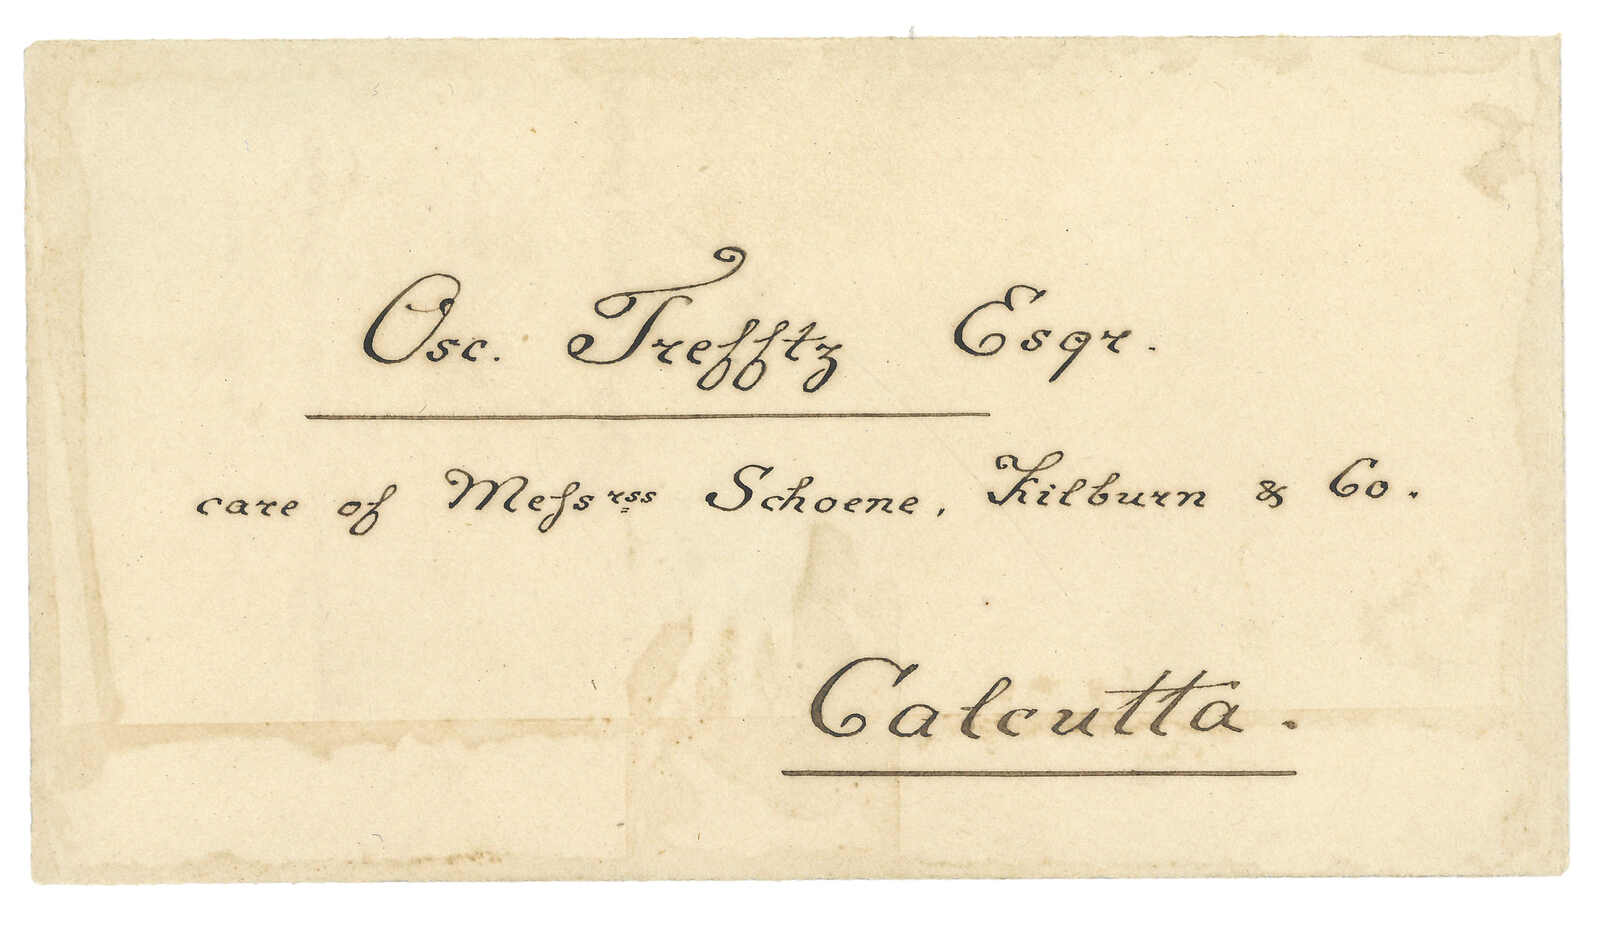 Osc. Trefftz Esqr.
care of Meſsrss Schoene, Kilburn & Co.
Calcutta.